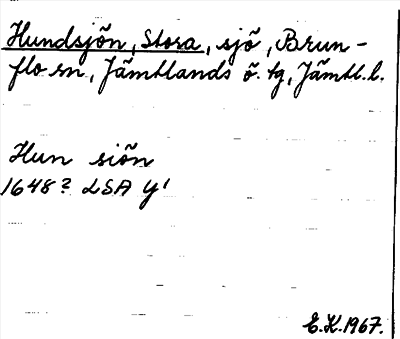 Hundsjön, Stora, sjö, Brun-
flo sn, Jämtlands ö. tg, Jämtl. l.
Hun siön
1648? LSA Y¹
E.K. 1967.